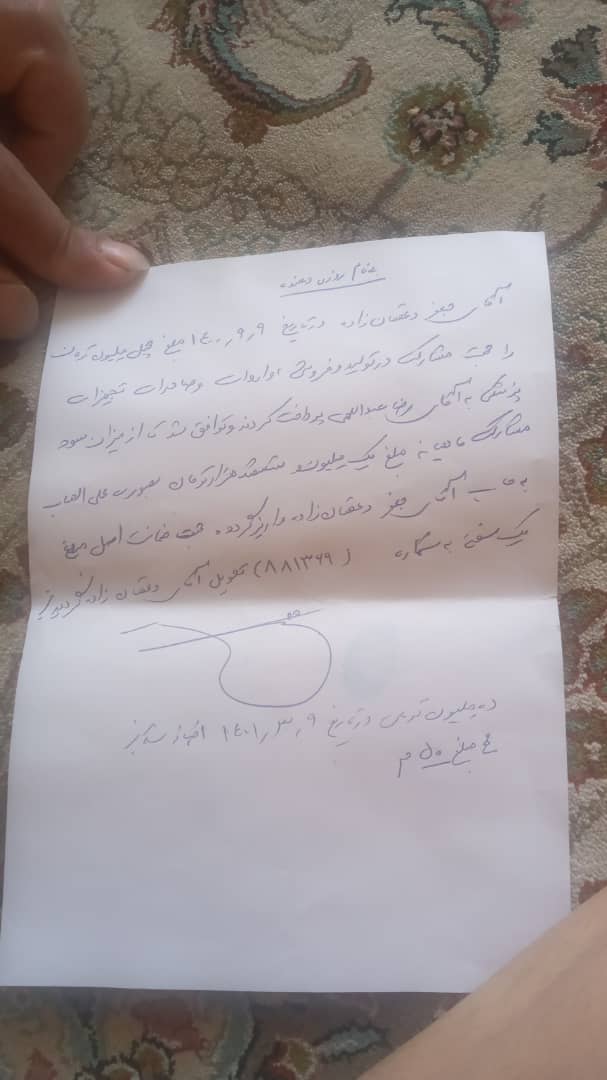 بنام روزی دهنده
آقای جعفر دهقان زاده در تاریخ ۱۴۰۰٫۹٫۹ مبلغ چهل میلیون تومان
را جهت مشارکت در تولید و فروش، واردات و صادرات تجهیزات
پزشکی به آقای رضا عبداللهی پرداخت کردند و توافق شد تا از میزان سود
مشارکت ماهیانه مبلغ یک میلیون و ششصد هزار تومان بصورت علی الحساب
به حساب آقای جعفر دهقان زاده واریز گردد. جهت ضمانت اصل مبلغ
یک سفته به شماره (۸۸۱۳۶۹) تحویل آقای دهقان زاده گردید
ده میلیون تومان در تاریخ ۱۴۰۱٫۳٫۹ اضافه شد
مبلغ ۵۰ م